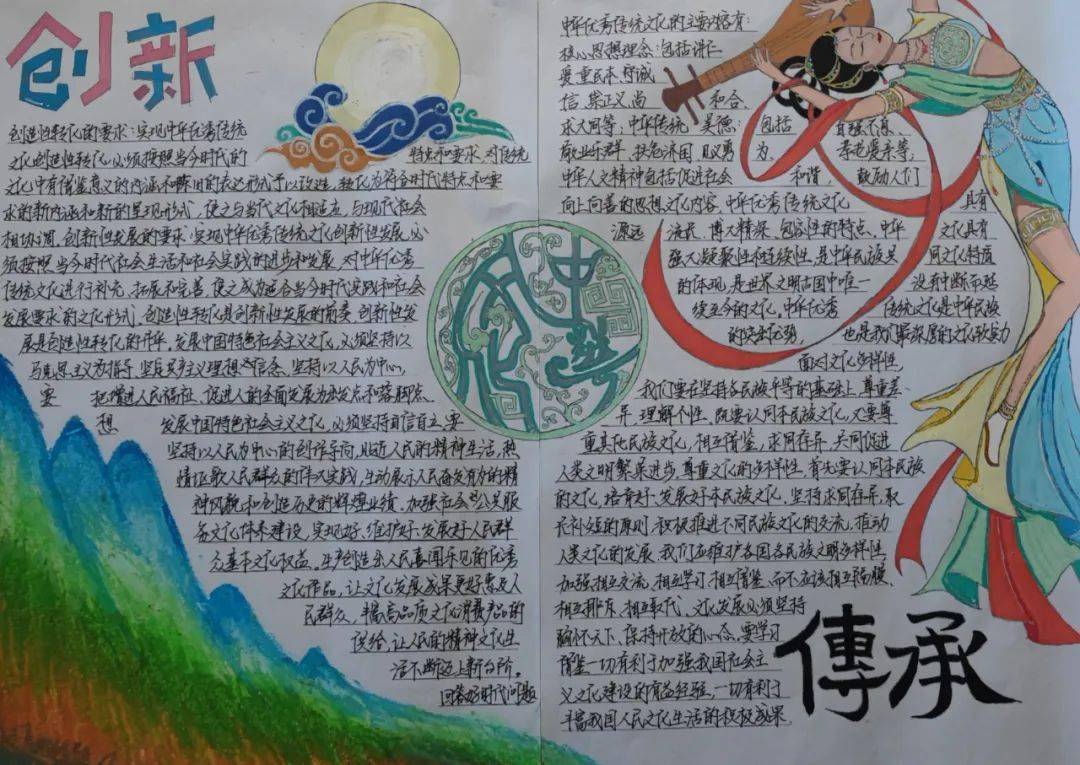 创新
创造性转化的要求:实现中华优秀传统
文化创造性转化,必须按照当今时代的
特点和要求,对传统
文化中有借鉴意义的内涵和陈旧的表达形式予以改造,转化为符合时代特点和要
求的新内涵和新的呈现形式,使之与当代文化相适应,与现代社会
相协调。创新性发展的要求:实现中华优秀传统文化创新性发展,必
须按照当今时代社会生活和社会实践的进步和发展,对中华优秀
传统文化进行补充、拓展和完善,使之成为适合当今时代实践和社会
发展要求的文化形式。创造性转化是创新性发展的前奏,创新性发
展是创造性转化的升华。发展中国特色社会主义文化,必须坚持以
马克思主义为指导,坚定共产主义理想信念,坚持以人民为中心,
要 把增进人民福祉、促进人的全面发展为出发点和落脚点。
想 发展中国特色社会主义文化,必须坚持自信自立,要
坚持以人民为中心的创作导向,贴近人民的精神生活,热
情讴歌人民群众的伟大实践,生动展示人民奋发有为的精
神风貌和创造历史的辉煌业绩。加强社会公共服
务文化体系建设,实现好、维护好、发展好人民群
众基本文化权益。生产创造出人民喜闻乐见的优秀
文化作品,让文化发展成果更好惠及人
民群众,丰富高品质文化消费产品的
供给,让人民的精神文化生
活不断迈上新台阶。
回答好时代问题
中华文化
中华优秀传统文化的主要内容有:
核心思想理念:包括讲仁
爱、重民本、守诚
信、崇正义、尚 和合、
求大同等;中华传统 美德:包括 自强不息、
敬业乐群、扶危济困、见义勇 为、 孝老爱亲等,
中华人文精神包括促进社会 和谐, 鼓励人们
向上向善的思想文化内容。中华优秀传统文化 具有
源远 流长、博大精深、包容性的特点。中华 文化具有
强大凝聚性和持续性,是中华民族共 同文化特质
的体现,是世界文明古国中唯一 没有中断而延
续至今的文化。中华优秀 传统文化是中华民族
的突出优势, 也是我们最深厚的文化软实力
面对文化多样性,
我们要在坚持各民族平等的基础上,尊重差
异,理解个性。既要认同本民族文化,又要尊
重其他民族文化,相互借鉴,求同存异,共同促进
人类文明繁荣进步。尊重文化的多样性,首先要认同本民族
的文化,培育好、发展好本民族文化。坚持求同存异、取
长补短的原则,积极推进不同民族文化的交流,推动
人类文化的发展。我们应维护各国各民族文明多样性
加强相互交流、相互学习、相互借鉴,而不应该相互隔膜、
相互排斥、相互取代。文化发展必须坚持
胸怀天下,保持开放的心态,要学习
借鉴一切有利于加强我国社会主
义文化建设的有益经验,一切有利于
丰富我国人民文化生活的积极成果。
傳承